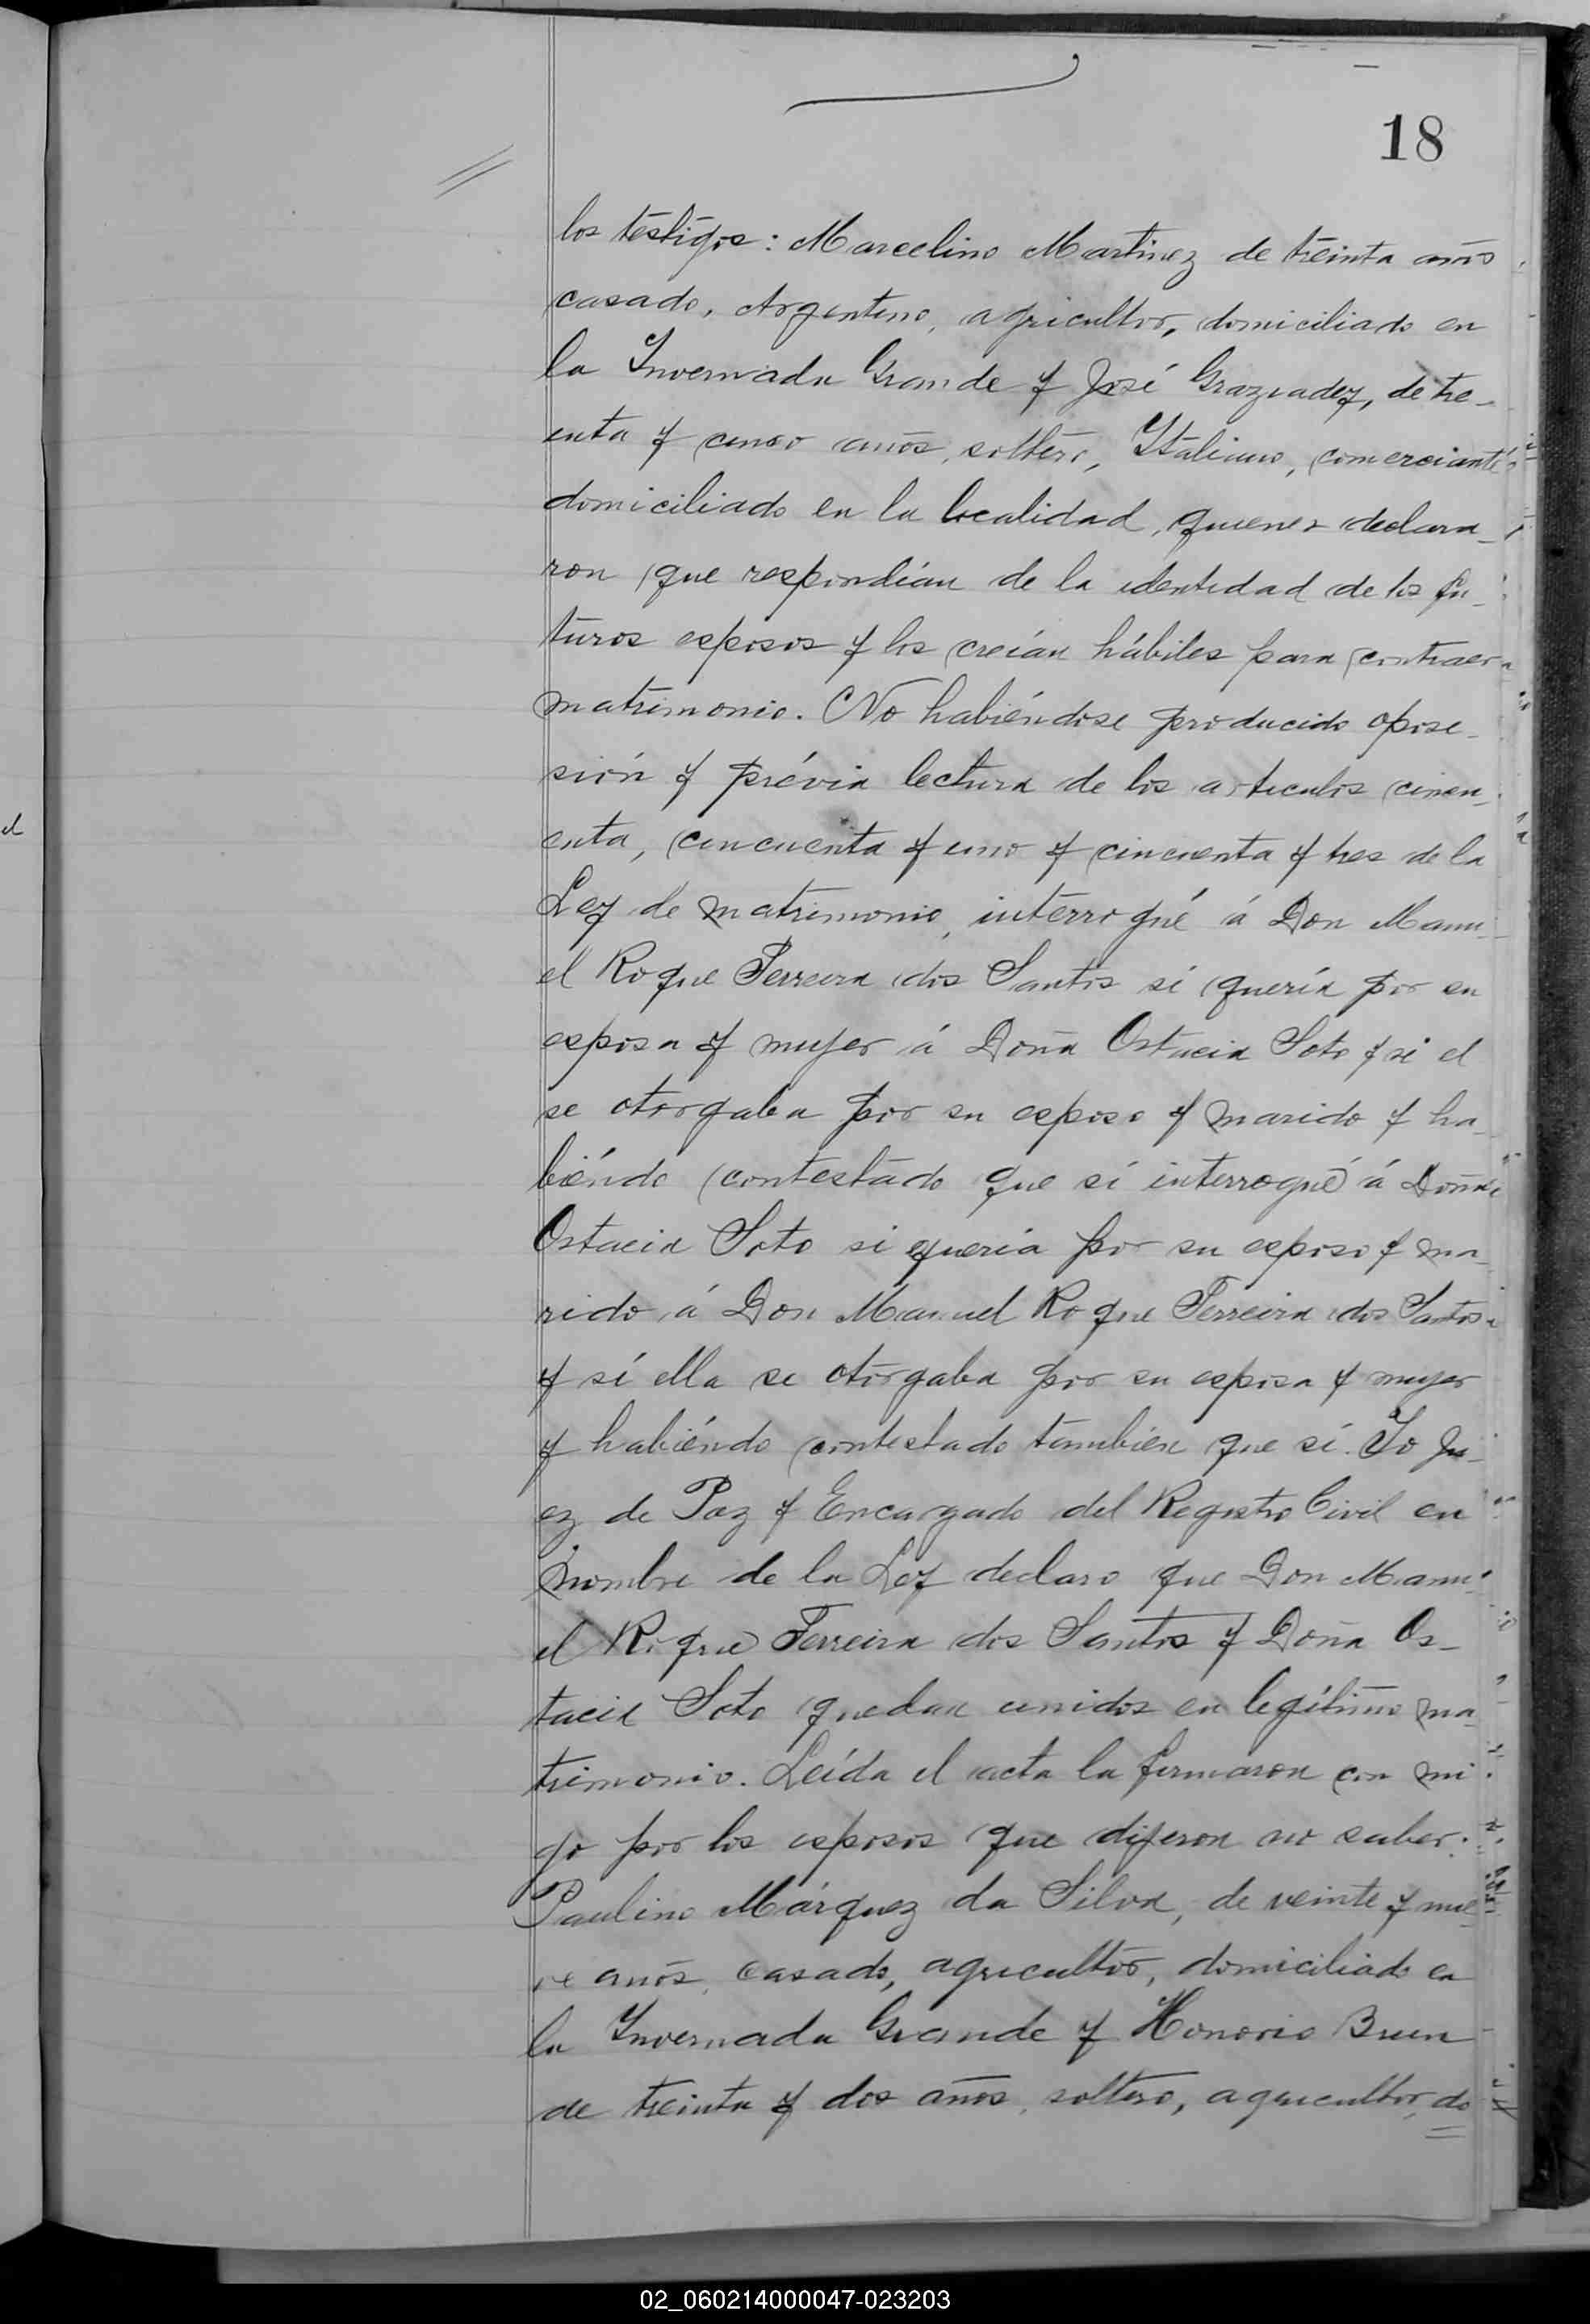 18
los testigos: Marcelino Martinez de treinta años
casado, Argentino, agricultor, domiciliado en
la Invernada Grande y José Graziadey, de tre-
inta y cinco años, soltero, Italiano, comerciante
domiciliado en la localidad, quienes declara-
ron que respondían de la identidad de los fu-
turos esposos y los creían hábiles para contraer
matrimonio. No habiéndose producido opose-
sión y prévia lectura de los articulos cincu-
enta, cincuenta y uno y cincuenta y tres de la
Ley de matrimonio, interrogué á Don Manu-
el Roque Ferreira dos Santos si quería por su
esposa y mujer á Doña Ostacia Soto y si el
se otorgaba por su esposo y marido y ha-
biéndo contestado que sí interrogué á Doña
Ostacia Soto si quería por su esposo y ma-
rido á Don Manuel Roque Ferreira dos Santos
y sí ella se otorgaba por su esposa y mujer
y habiéndo contestado tambien que sí. Yo Ju-
ez de Paz y Encargado del Registro Civil en
nombre de la Ley declaro que Don Manu-
el Roque Ferreira dos Santos y Doña Os-
tacia Soto quedan unidos en legítimo ma-
trimonio. Leída el acta la firmaron con mi
go por los esposos que dijeron no saber.
Paulino Márquez da Silva, de veinte y nue-
ve anos, casado, agricultor, domiciliado en
la Invernada Grande y Honorio Brun
de treinta y dos años, soltero, agricultor, do
el
02_060214000047-023203